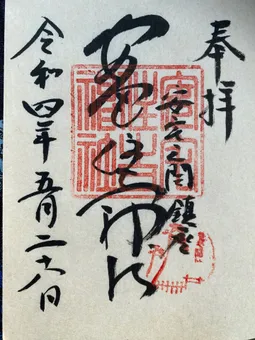 奉拝
安宅之関鎮座
安宅住吉神社
令和四年五月二十八日
安宅
住吉
神社